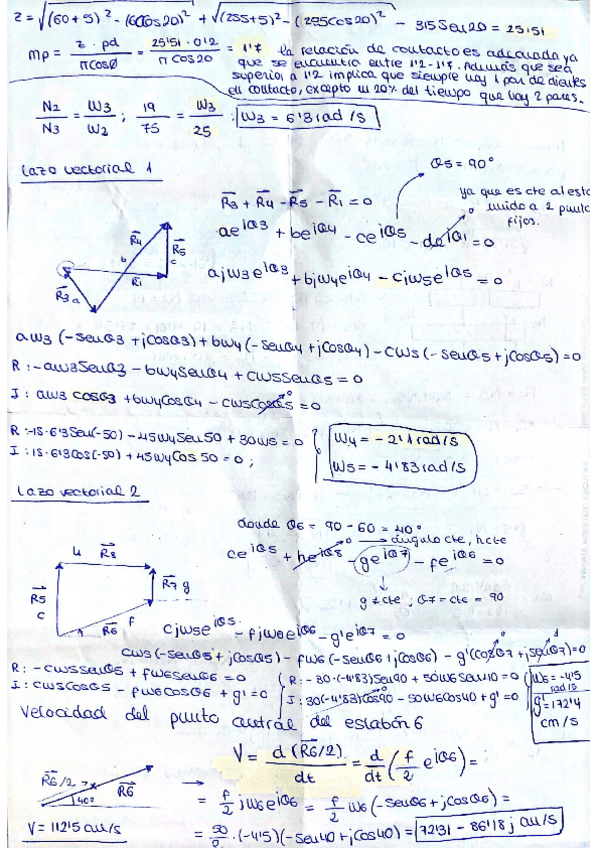 z = √((60+5)² - (60Cos20)²) + √((255+5)² - (295Cos20)²) - 315Sen20 = 25'51
mp = z · pd / πCosØ = 25'51 · 0'12 / π Cos20 = 1'7 la relación de contacto es adecuada ya
que se encuentra entre 1'2-1'7. Además que sea
superior a 1'2 implica que siempre hay 1 par de dientes
en contacto, excepto un 20% del tiempo que hay 2 pares.
N2/N3 = W3/W2 ; 19/75 = W3/25 : W3 = 6'3 rad/s
Lazo vectorial 1
θ5 = 90°
R3 + R4 - R5 - R1 = 0
ya que es cte al estar
unido a 2 punto
fijos.
ae^iθ3 + be^iθ4 - ce^iθ5 - de^iθ1 = 0
ajw3e^iθ3 + bjw4e^iθ4 - cjw5e^iθ5 = 0
R4
b
R5
c
R1
R3 a
aw3 (-senθ3 + jcosθ3) + bw4 (-senθ4 + jcosθ4) - cw5 (-senθ5 + jcosθ5) = 0
R : -aw3senθ3 - bw4senθ4 + cw5senθ5 = 0
I : aw3 cosθ3 + bw4cosθ4 - cw5cosθ5 = 0
R : -15·6'3Sen(-50) - 45w4Sen50 + 30w5 = 0
I : 15·6'3cos(-50) + 45w4cos50 = 0 ;
W4 = -2'1 rad/s
W5 = -4'83 rad/s
Lazo vectorial 2
donde θ6 = 90 - 60 = 40°
ángulo cte, h cte
ce^iθ5 + he^iθ8 - ge^iθ7 - fe^iθ6 = 0
g ≠ cte, θ7 = cte = 90
R8
R5
c
R7 g
f
R6
cjw5e^iθ5 - fjw6e^iθ6 - g'e^iθ7 = 0
cw5 (-senθ5 + jcosθ5) - fw6 (-senθ6 + jcosθ6) - g'(cosθ7 + jsenθ7) = 0
R : -cw5senθ5 + fw6senθ6 = 0
I : cw5cosθ5 - fw6cosθ6 + g' = 0
R : -30·(-4'83)sen90 + 50w6sen40 = 0
I : 30(-4'83)cos90 - 50w6cos40 + g' = 0
W6 = -4'5
rad/s
g' = 172'4
cm/s
Velocidad del punto central del eslabón 6
V = d(R6/2)/dt = d/dt (f/2 e^iθ6) =
R6/2
R6
40°
→ = f/2 jw6e^iθ6 = f/2 w6 (-senθ6 + jcosθ6) =
V = 112'5 cm/s
= 50/2 · (-4'5)(-sen40 + jcos40) = 72'31 - 86'18j cm/s